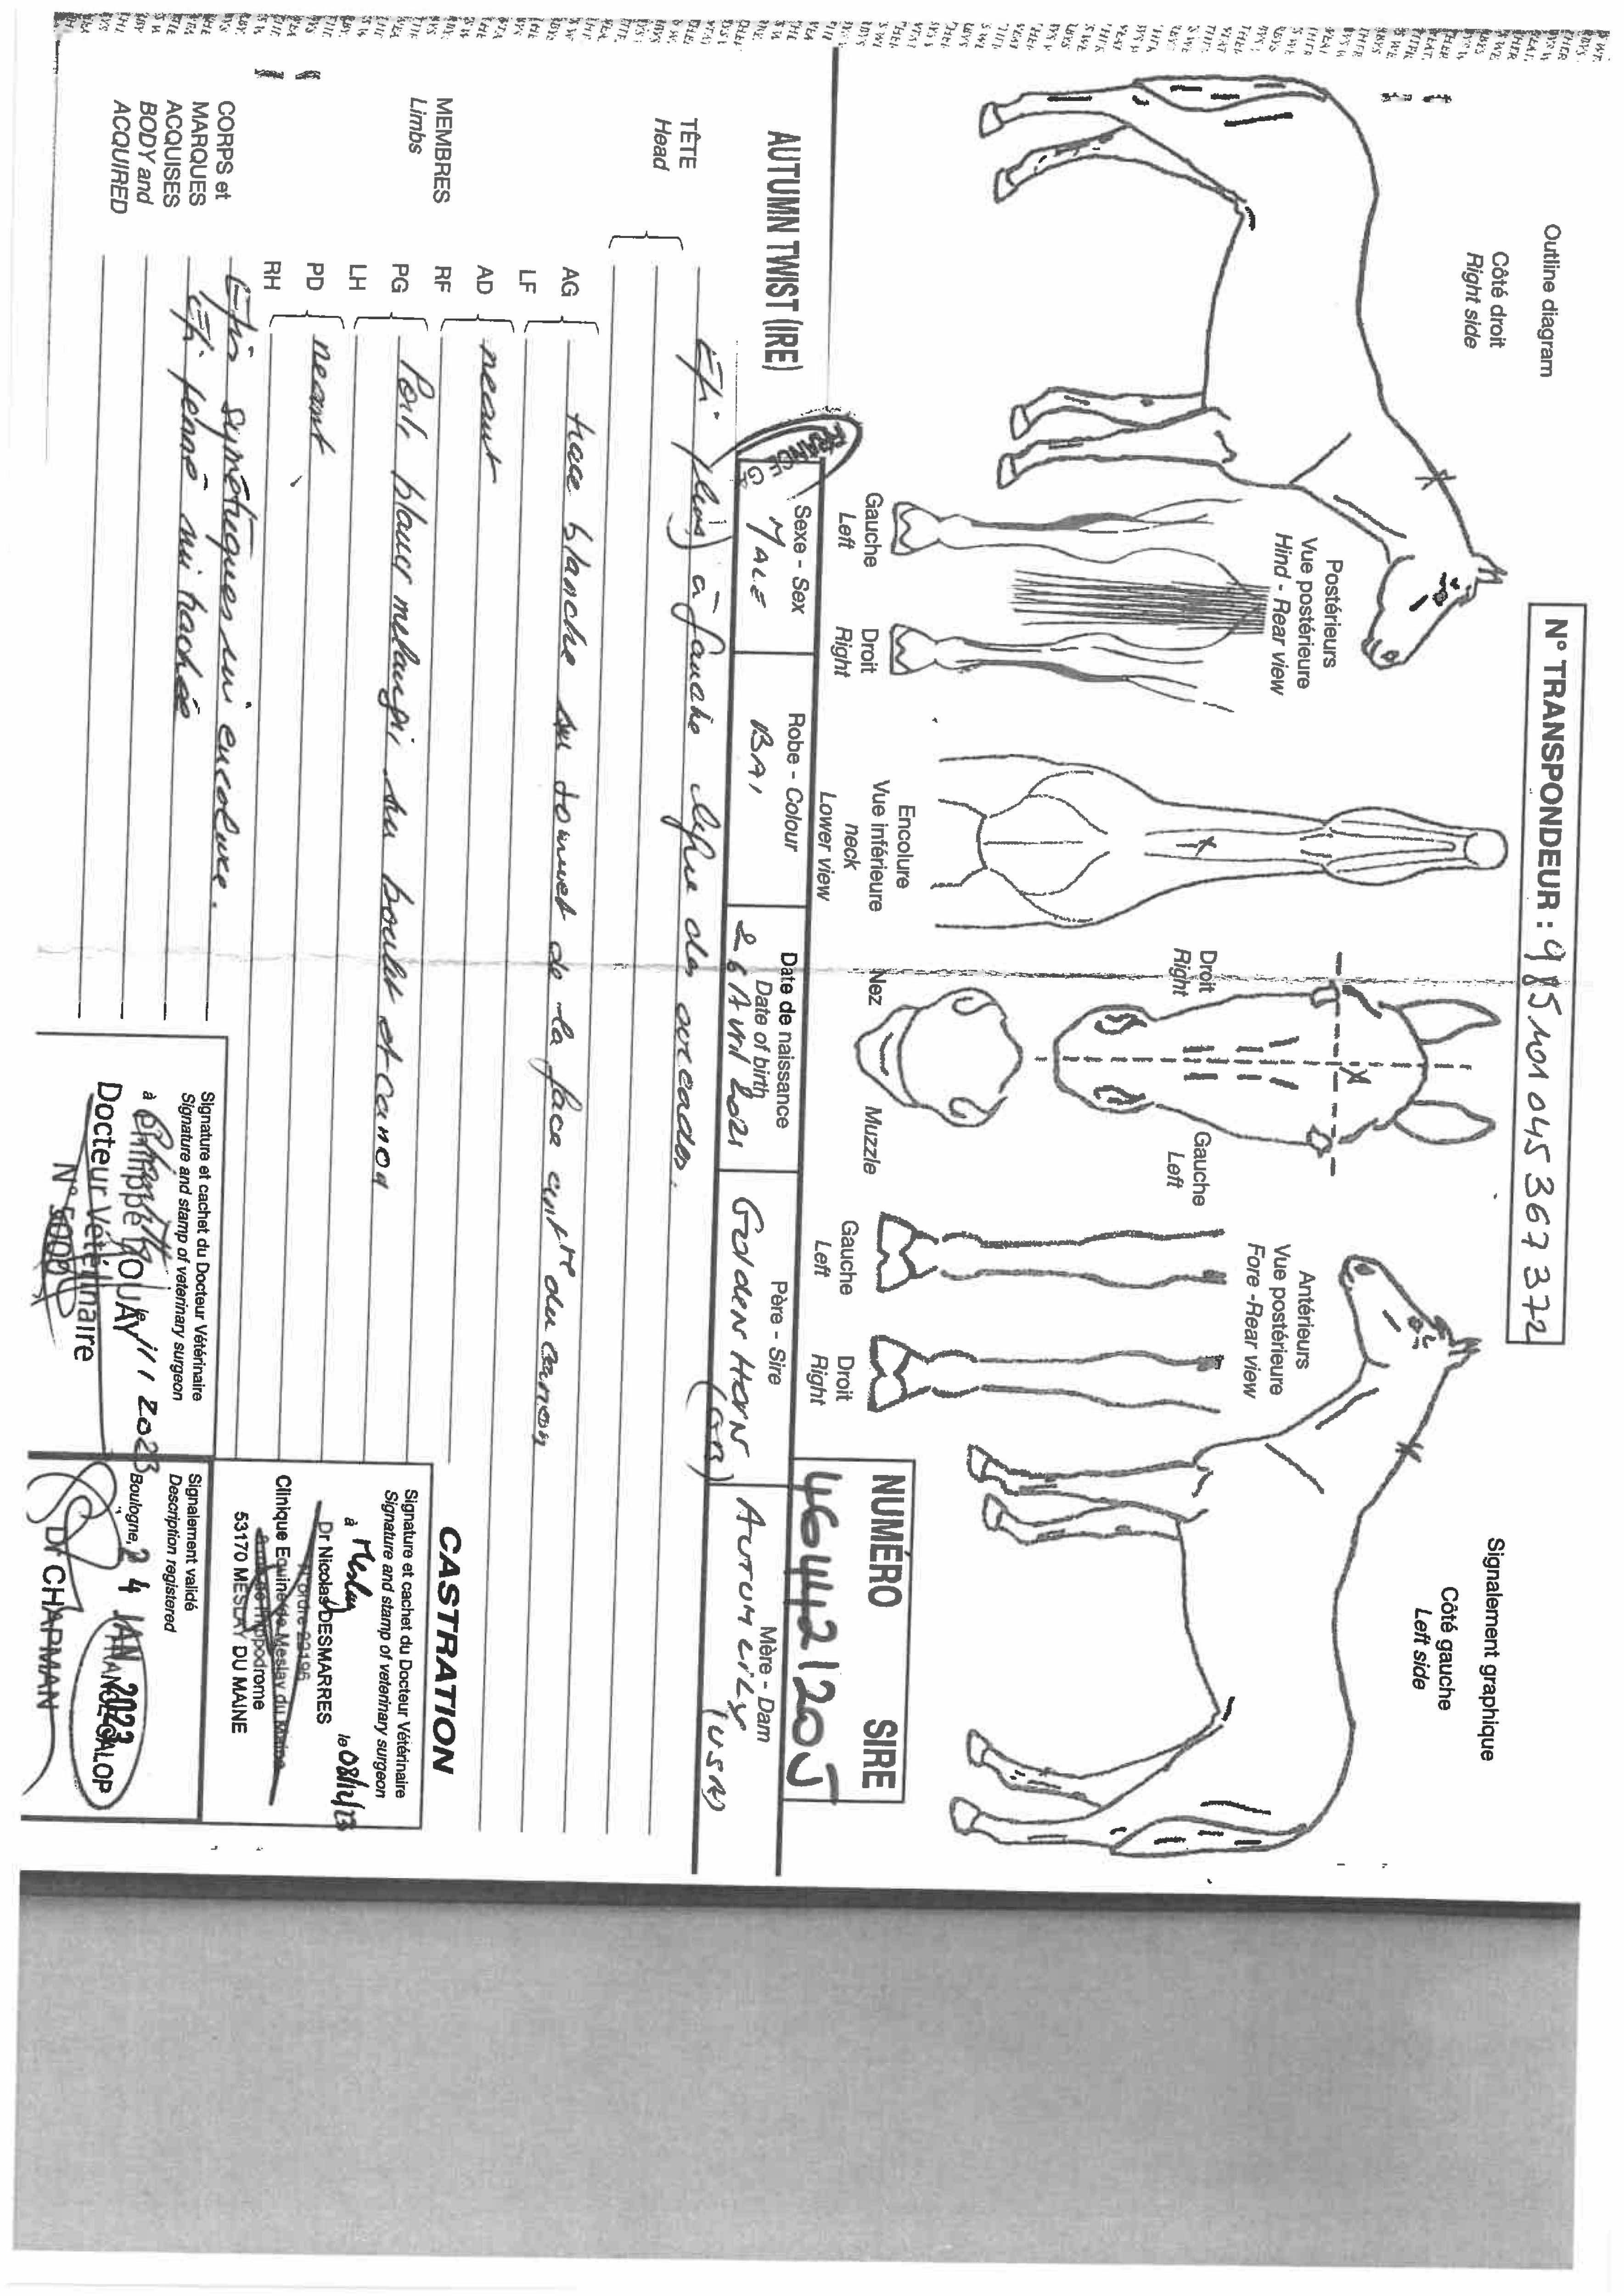 Outline diagram
Côté droit
Right side
N° TRANSPONDEUR : 985101045367372
Signalement graphique
Côté gauche
Left side
Postérieurs
Vue postérieure
Hind - Rear view
Gauche
Left
Droit
Right
Encolure
Vue inférieure
neck
Lower view
Droit
Right
Gauche
Left
Nez
Muzzle
Antérieurs
Vue postérieure
Fore - Rear view
Gauche
Left
Droit
Right
NUMÉRO SIRE
46442120J
AUTUMN TWIST (IRE)
FRANCE GA
Sexe - Sex
MALE
Robe - Colour
BAI
Date de naissance
Date of birth
26 Avril 2021
Père - Sire
GOLDEN HORN
(GB)
Mère - Dam
AUTUM LILY
(USA)
TÊTE
Head
Epi (plus) à gauche ligne des arcades.
MEMBRES
Limbs
AG
LF
trace blanche au sommet de la face antre du canon
AD
RF
neant
PG
LH
Poils blancs melangés au boulet et canon
PD
RH
neant
CORPS et
MARQUES
ACQUISES
BODY and
ACQUIRED
Epis symétriques mi encolure.
Epi penné mi trachée
CASTRATION
Signature et cachet du Docteur Vétérinaire
Signature and stamp of veterinary surgeon
à Meslay le 08/12/23
Dr Nicolas DESMARRES
N° ordre 20196
Clinique Equine de Meslay du Maine
53170 MESLAY DU MAINE
Signature et cachet du Docteur Vétérinaire
Signature and stamp of veterinary surgeon
à le 11 2023
Philippe
Docteur Vétérinaire
N° 5000
Signalement validé
Description registered
Boulogne, 24 JAN 2023
FRANCE GALOP
Dr CHAPMAN